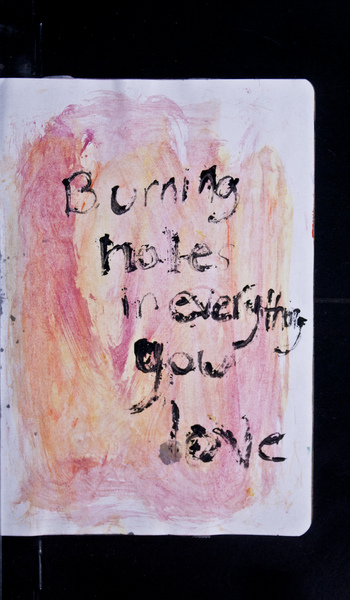 Burning
holes
in everything
you
love